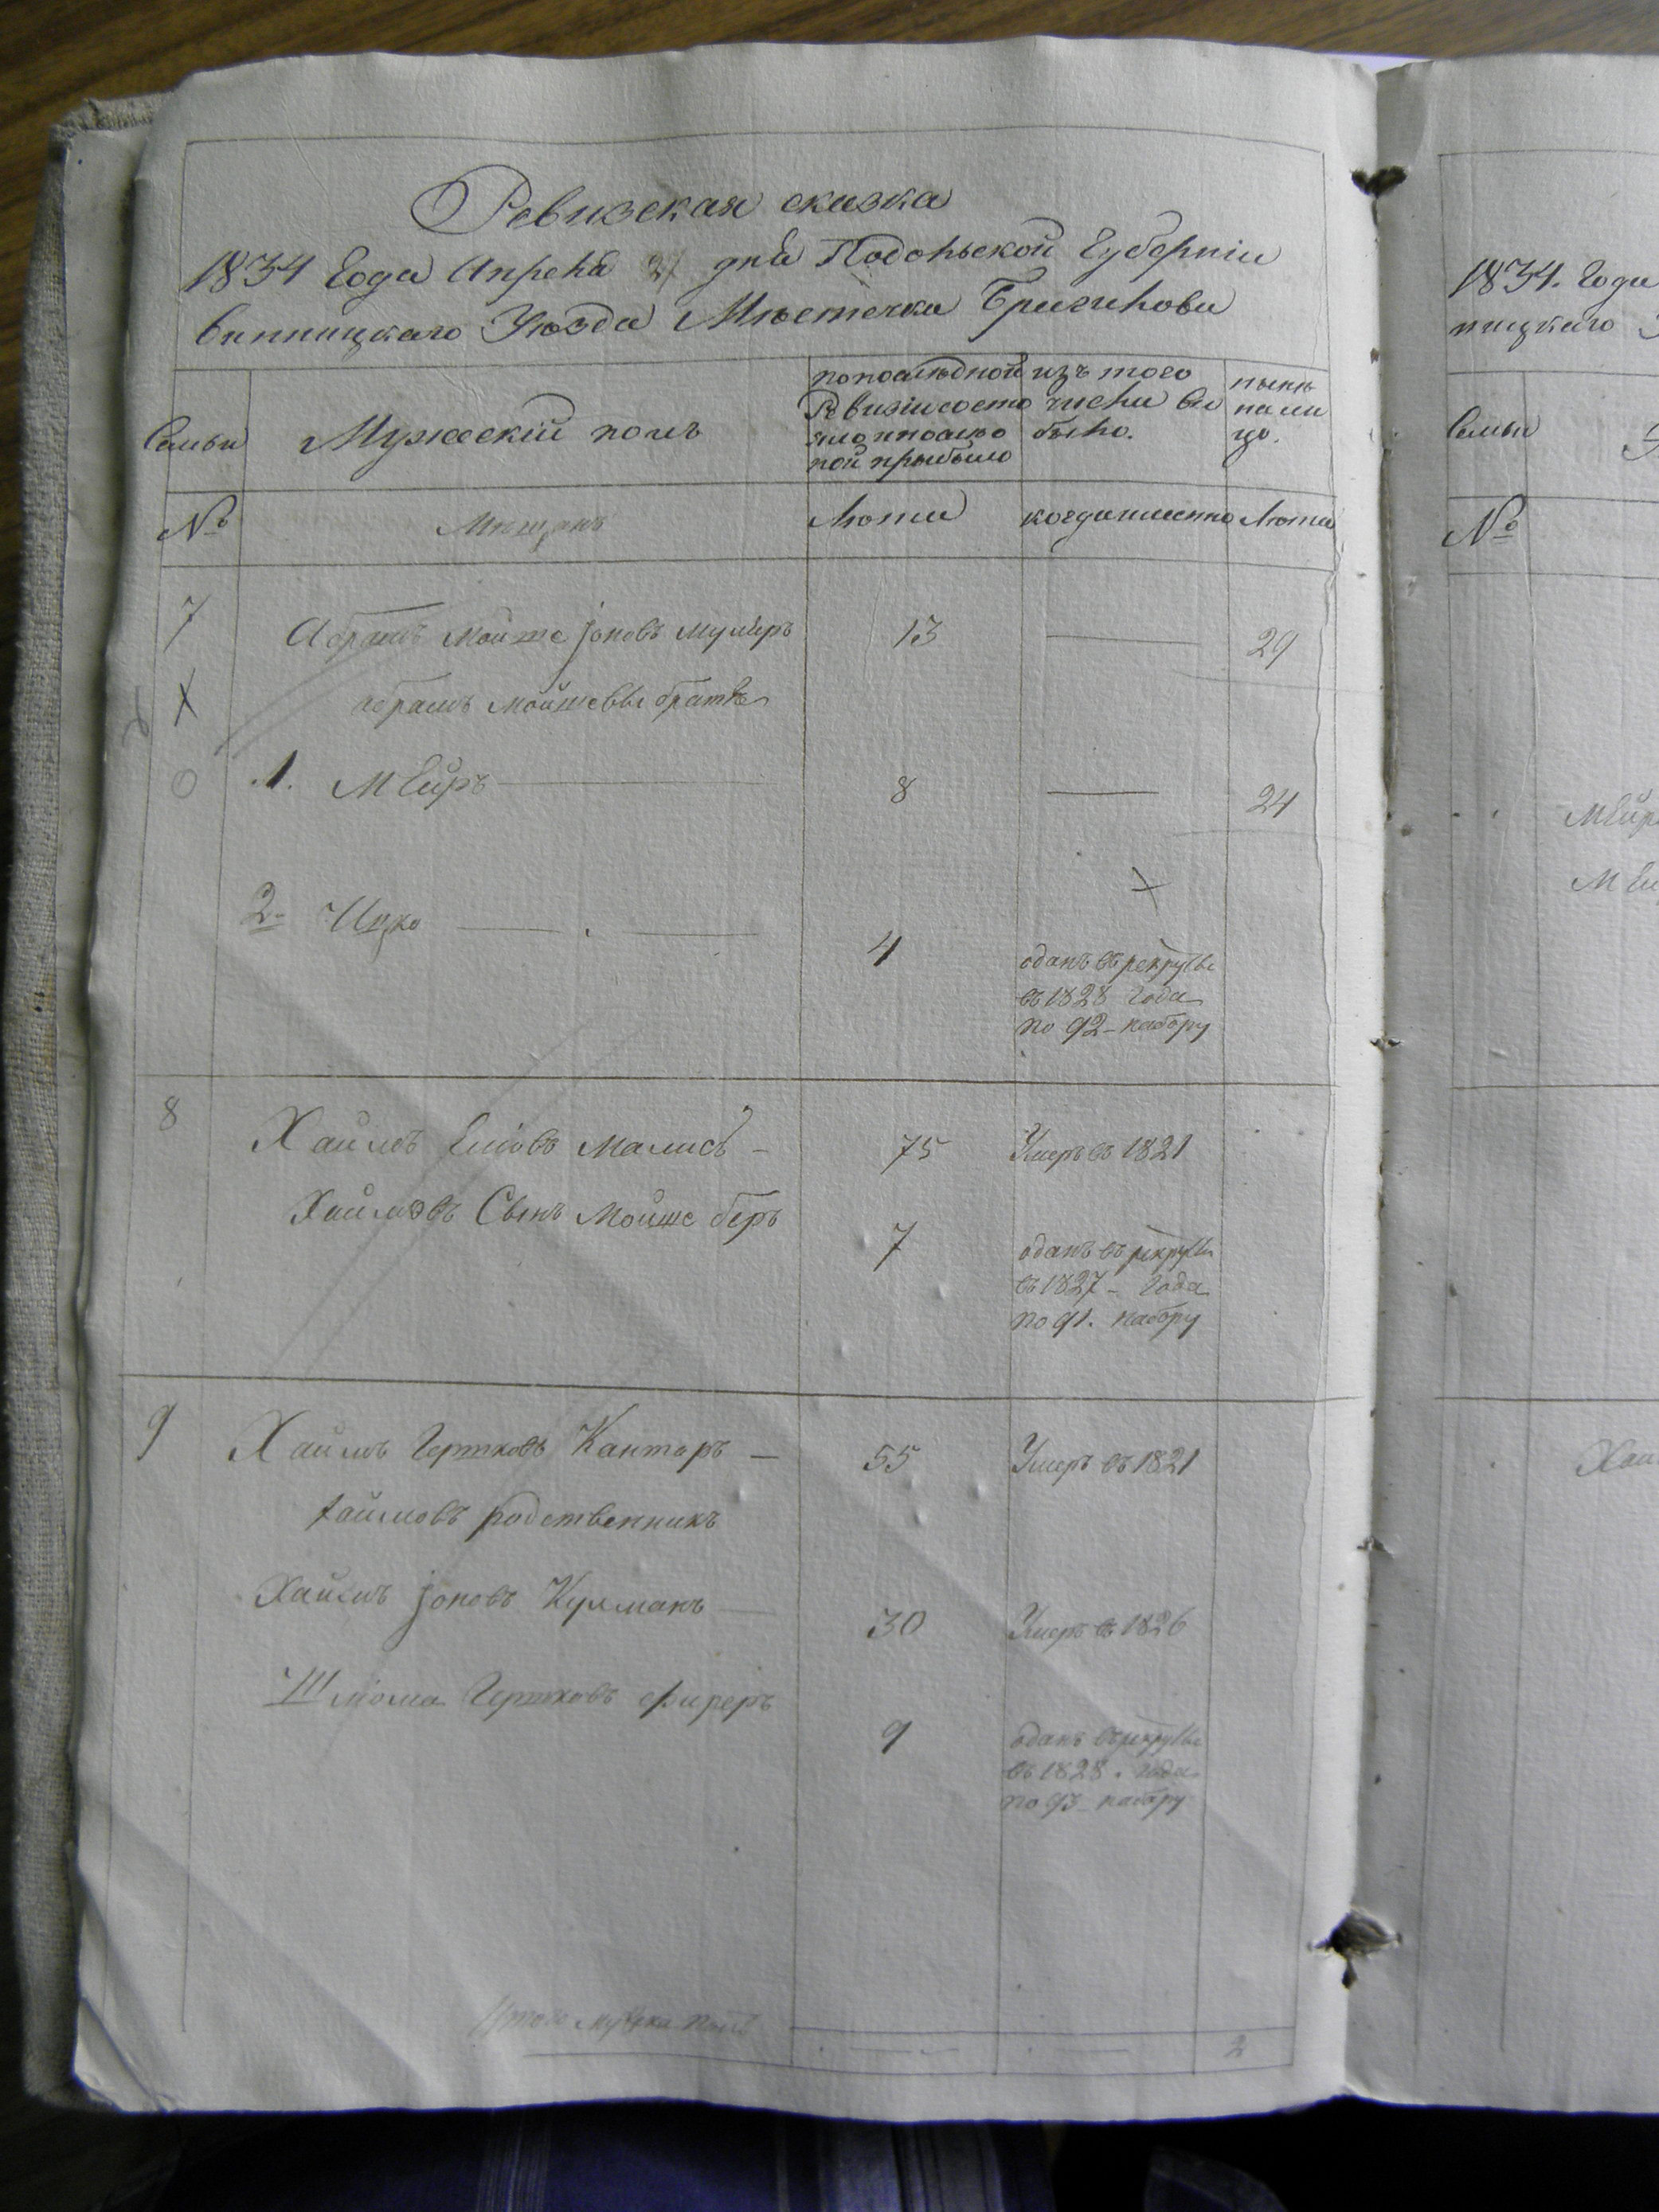 Ревизская сказка
1834 Года Апреля 21 дня Подольской Губернiи
Винницкаго Уѣзда Мѣстечка Браилова
Семьи
Мужескiй полъ
по послѣдной
Ревизiи состо
яло и послѣ
ной прибыло
изъ того
числа вы
было.
нынѣ
на ли
цо.
№
Мещанъ
Лѣта
когда именно
Лѣта
7 Абрамъ Мойше Iоновъ Мулеръ 13 29
Абрамъ Мойшевы братья
1. Мейръ 8 24
2 Ицко 4
оданъ въ рекруты
въ 1828 Года
по 92 набору
8 Хаимъ Малисъ 75 Умеръ въ 1821
Хаимовъ Сынъ Мойше беръ 7
оданъ въ рекруты
въ 1827 Года
по 91. набору
9 Хаимъ Гершковъ Канторъ 55 Умеръ въ 1821
Хаимовъ родственникъ
Хаимъ Iоновъ Кулманъ 30 Умеръ въ 1826
Шлiома Гершковъ Фиреръ 9
оданъ въ рекруты
въ 1828. Года
по 93 набору
Итого полъ 2
1834. Года
ницкаго
Семьи
№
Мейр